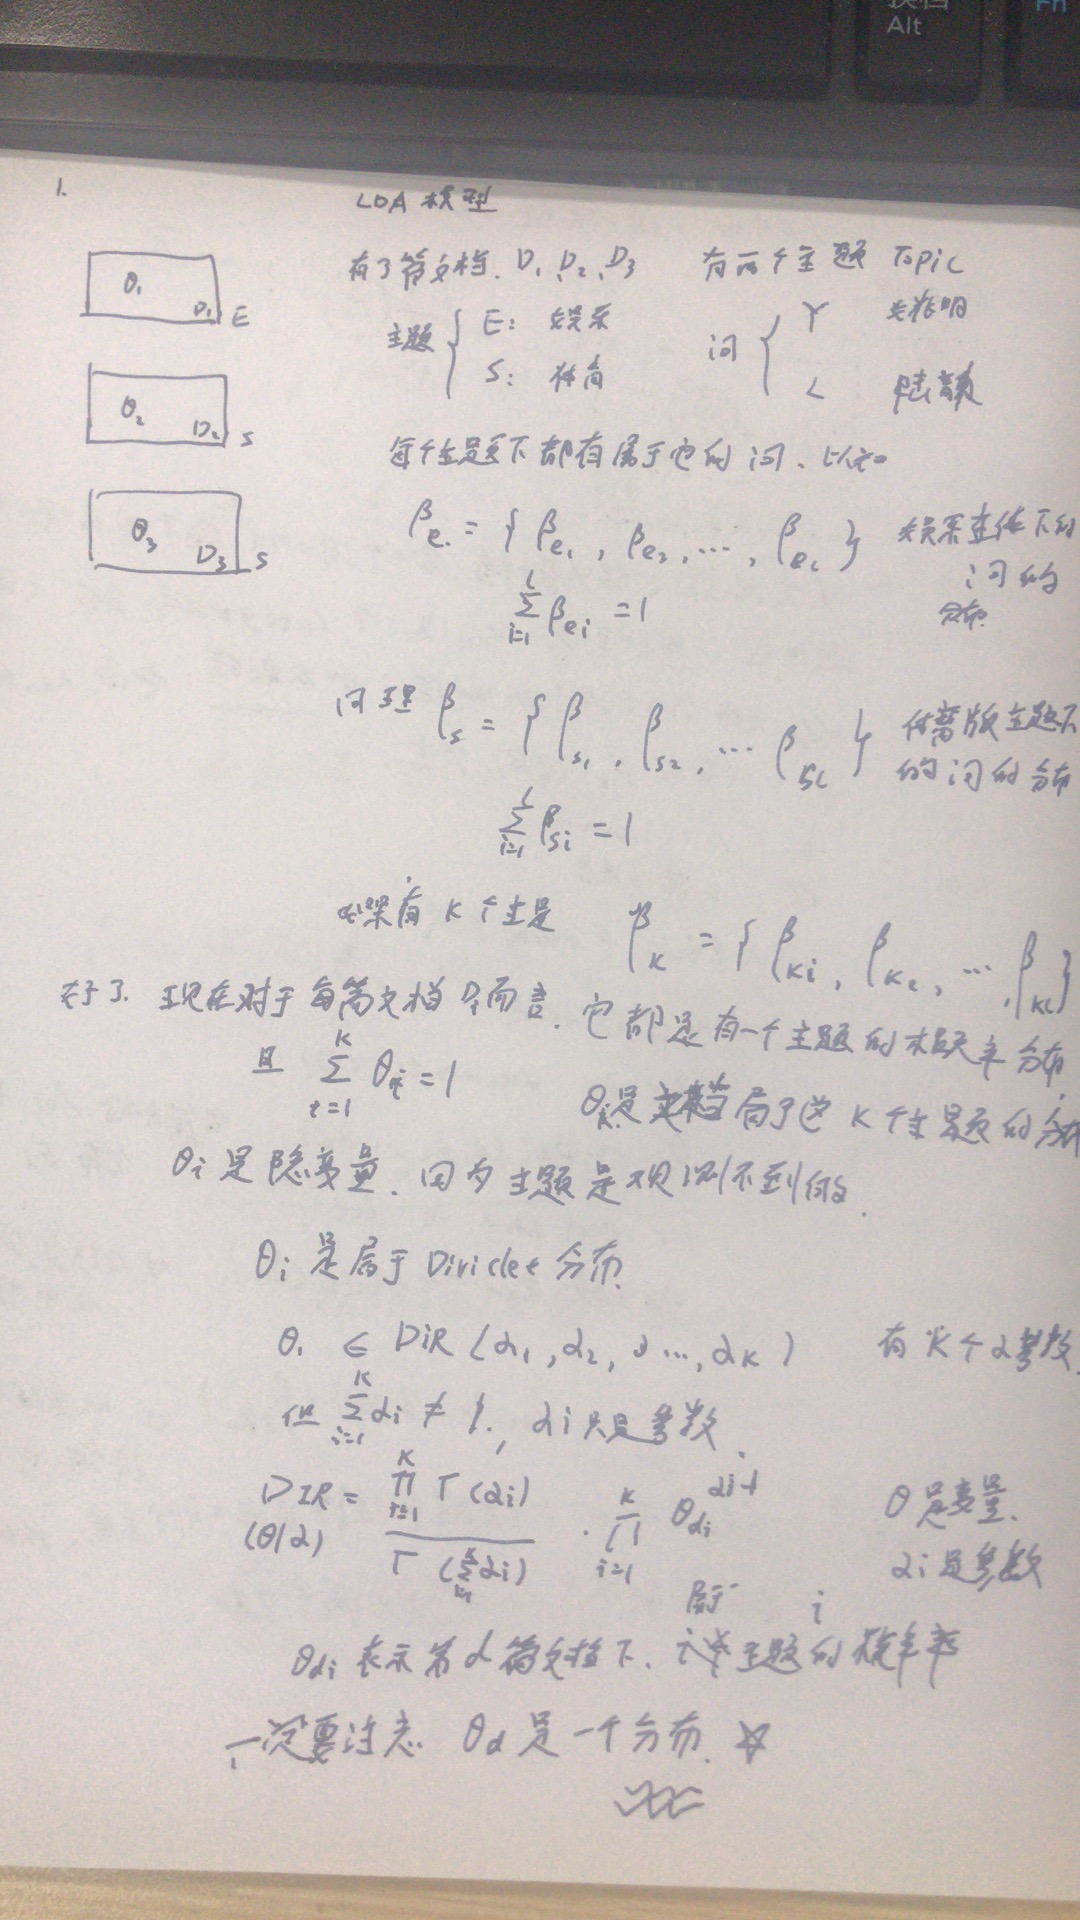 Alt
Fn
1.
LDA 模型
θ₁ D₁ E
有3篇文档、D₁、D₂、D₃ 有两个主题 Topic
主题 { E: 娱乐
S: 体育
词 { Y
L
θ₂ D₂ S
每个主题下都有属于它的词、比如
θ₃ D₃ S
βe = { βe₁ , βe₂ , … , βeL } 娱乐主体下的
词的
分布
∑_{i=1}^{L} βei = 1
同理 βs = { βs₁ , βs₂ , … βsL } 体育版主题下
的词的分布
∑_{i=1}^{L} βsi = 1
如果有 K 个主是 βK = { βKi , βK₂ , … , βKL }
好了. 现在对于每篇文档 Di 而言、它都是有一个主题的概率分布
且 ∑_{i=1}^{K} θi = 1
θi 是文档属于这 K 个主题的分布
θi 是隐变量、因为主题是观测不到的.
θi 是属于 Diriclet 分布.
θ₁ ∈ DiR (α₁ , α₂ , … , αK ) 有 K 个 α 参数
但 ∑_{i=1}^{K} αi ≠ 1 , αi 只是参数.
DIR (θ|α) = ∏_{i=1}^{K} Γ(αi) / Γ(∑_{i=1}^{K} αi) · ∏_{i=1}^{K} θdi^{αi-1} θ 是变量.
αi 是参数
属于 i
θdi 表示第 d 篇文档下、主题的概率
一定要注意 θd 是一个分布. ☆